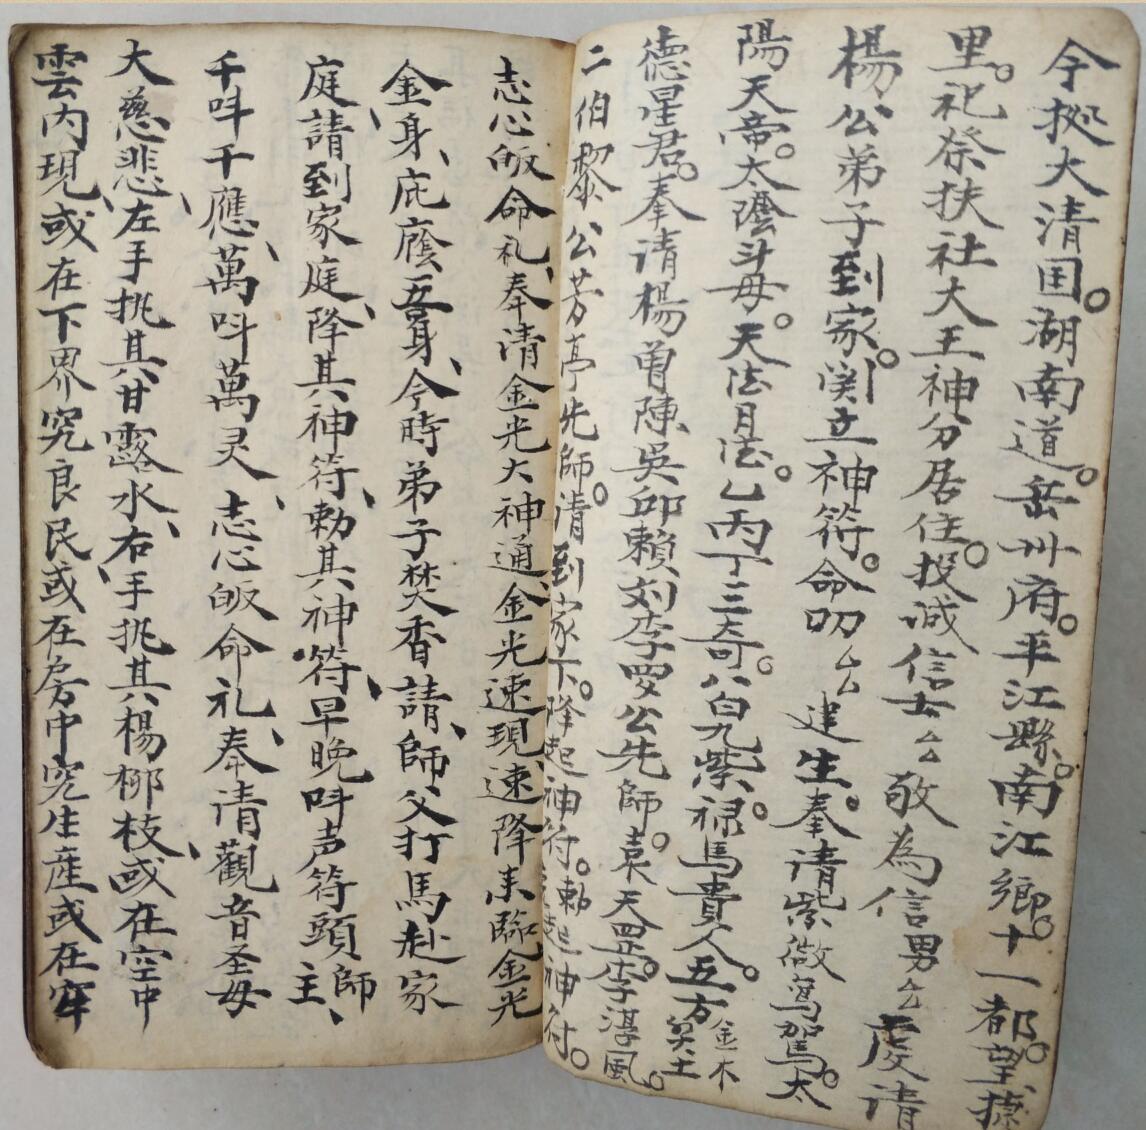 今拠大清囯。湖南道。岳卅府。平江縣。南江鄉。十一都。望
里。祀祭扶社大王神分居住。投诚信士厶厶敬為信男厶厶虔请
楊公弟子到家。関立神符。命叨厶厶建生。奉清紫微鸾駕。太
陽天帝。太陰斗母。天法月法。乙丙丁三奇。八白九紫。禄馬貴人。五方金木
德星君。奉请楊曾陳吳邱賴刘李
二伯黎公芳亭先師。清到家下。降起神符。勅起神符。
志心皈命礼、奉清金光大神通、金光速現、速降来臨、金光
金身、庇廕吾身、今時弟子焚香請、師父打馬赴家
庭、請到家庭、降其神符、勅其神符、早晚呌声符頭師主、
千呌千應、萬呌萬灵、志心皈命礼、奉清觀音圣母
大慈悲、左手挑其甘露水、右手挑其楊柳枝、或在空中
雲内現、或在下界究良民、或在房中究生産或在